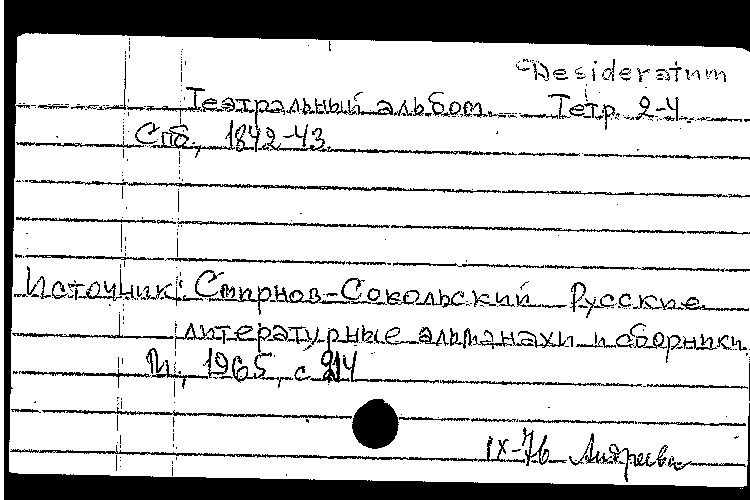 Desideratum
Театральный альбом. Тетр. 2-4
Спб., 1842-43.
Источник: Смирнов-Сокольский Русские
литературные альманахи и сборники.
М., 1965, с.
IX-76 Андреева